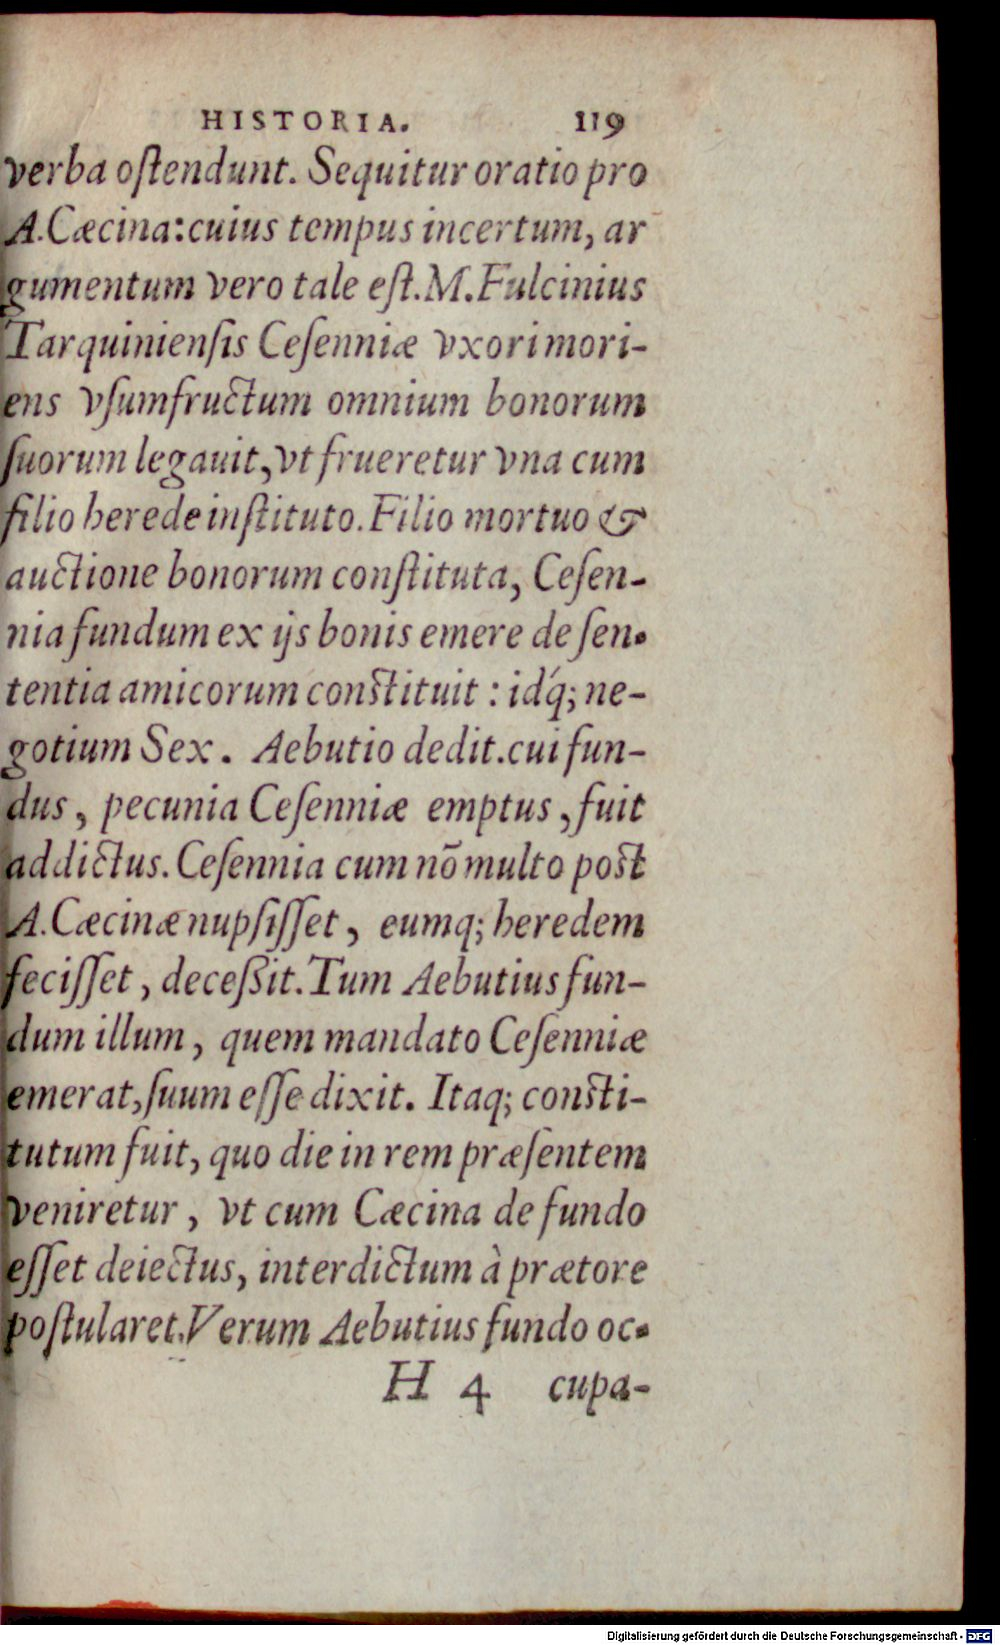 HISTORIA. 119
verba oſtendunt. Sequitur oratio pro
A. Cæcina: cuius tempus incertum, ar
gumentum vero tale eſt. M. Fulcinius
Tarquinienſis Ceſenniæ vxori mori-
ens vſumfructum omnium bonorum
ſuorum legauit, vt frueretur vna cum
filio herede inſtituto. Filio mortuo &
auctione bonorum conſtituta, Ceſen-
nia fundum ex ijs bonis emere de ſen-
tentia amicorum conſtituit : idq́; ne-
gotium Sex. Aebutio dedit. cui fun-
dus, pecunia Ceſenniæ emptus, fuit
addictus. Ceſennia cum nō multo poſt
A. Cæcinæ nupſiſſet, eumq; heredem
feciſſet, deceßit. Tum Aebutius fun-
dum illum, quem mandato Ceſenniæ
emerat, ſuum eſſe dixit. Itaq; conſti-
tutum fuit, quo die in rem præſentem
veniretur, vt cum Cæcina de fundo
eſſet deiectus, interdictum à prætore
poſtularet. Verum Aebutius fundo oc-
H 4 cupa-
Digitalisierung gefördert durch die Deutsche Forschungsgemeinschaft - DFG